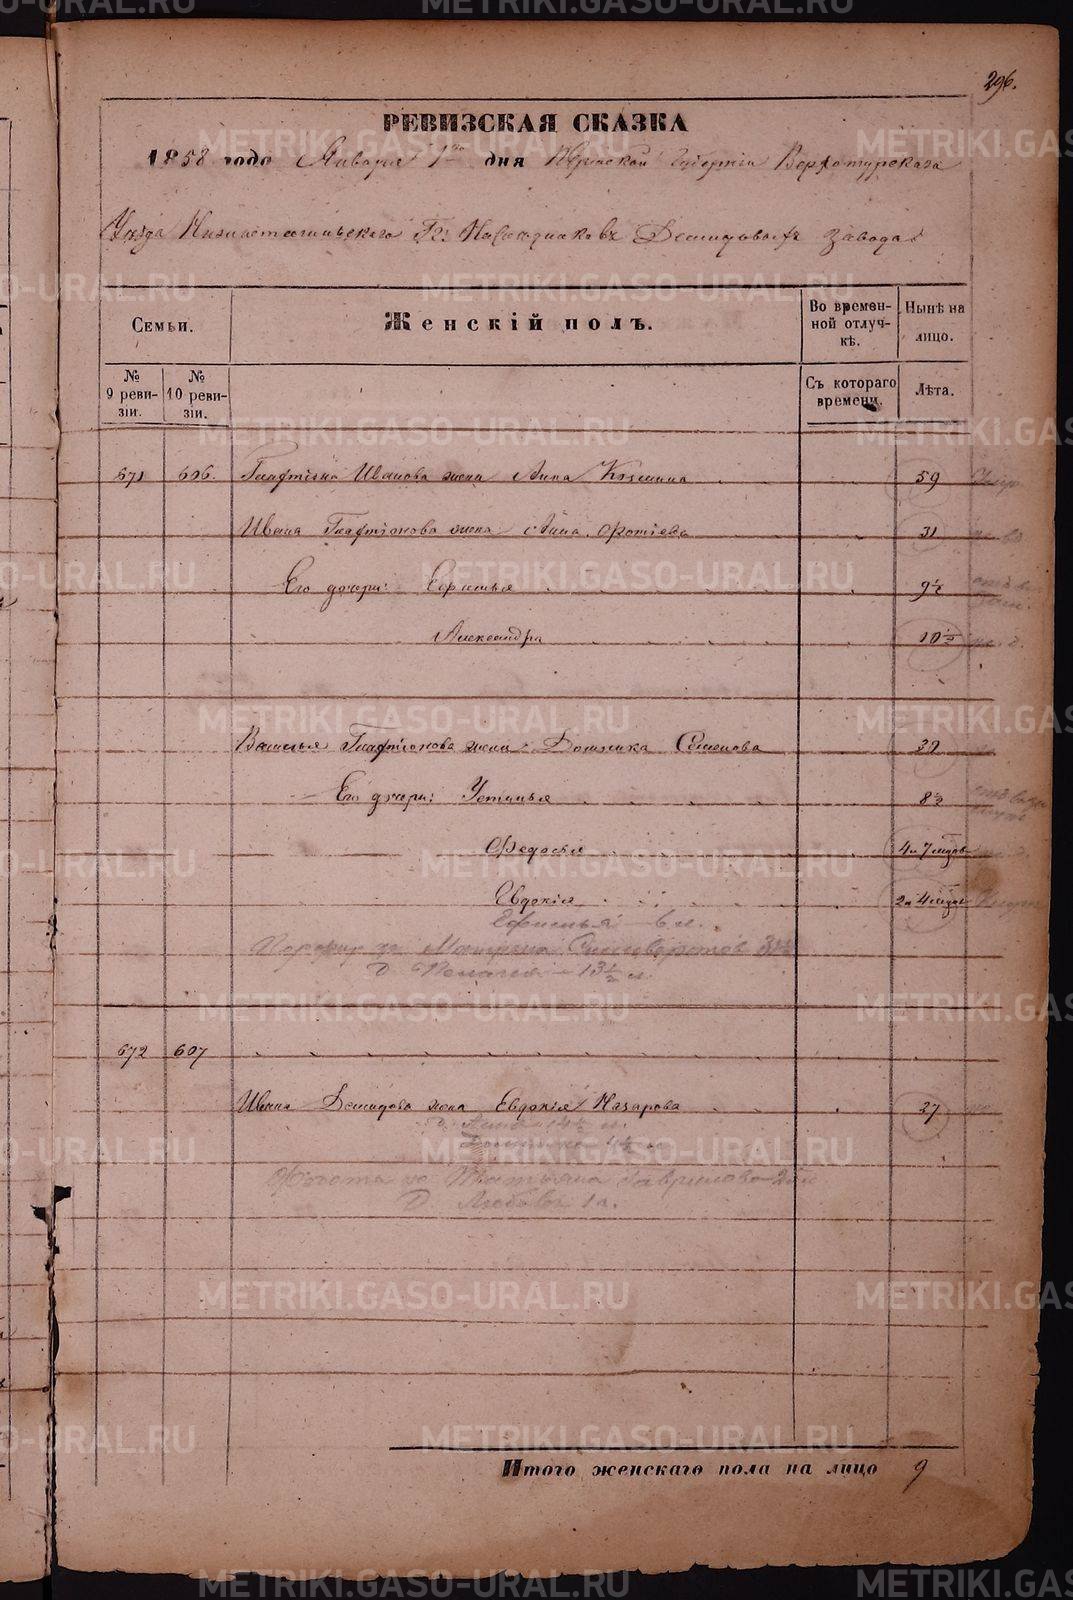 296.
РЕВИЗСКАЯ СКАЗКА
1858 года Января 1го дня Пермской Губернии Верхотурскаго
Уѣзда Нижнетагильскаго Гг. Наслѣдниковъ Демидовыхъ завода
Семьи.
Женскій полъ.
Во времен-
ной отлуч-
кѣ.
Нынѣ на
лицо.
№
9 реви-
зіи.
№
10 реви-
зіи.
Съ котораго
времени.
Лѣта.
671 606. Галактіона Иванова жена Анна Козмина 59
Ивана Галактіонова жена Анна Фотіева 31
Его дочери: Ефимья 9½
Александра 10½
Василья Галактіонова жена Домника Семенова 32
Его дочери: Устинья 8½
Федосья 4 и 7 мцовъ
Евдокія 2 и 4 мцовъ
Ефимья 6 л.
Матрена 
Д. Пелагея 13½ л.
672 607
Ивана Демидова жена Евдокія Назарова 37
Д. Анна 14½ л.
Татьяна Гаврилова
Д. Любовь 1 л.
Итого женскаго пола на лицо 9
METRIKI.GASO-URAL.RU